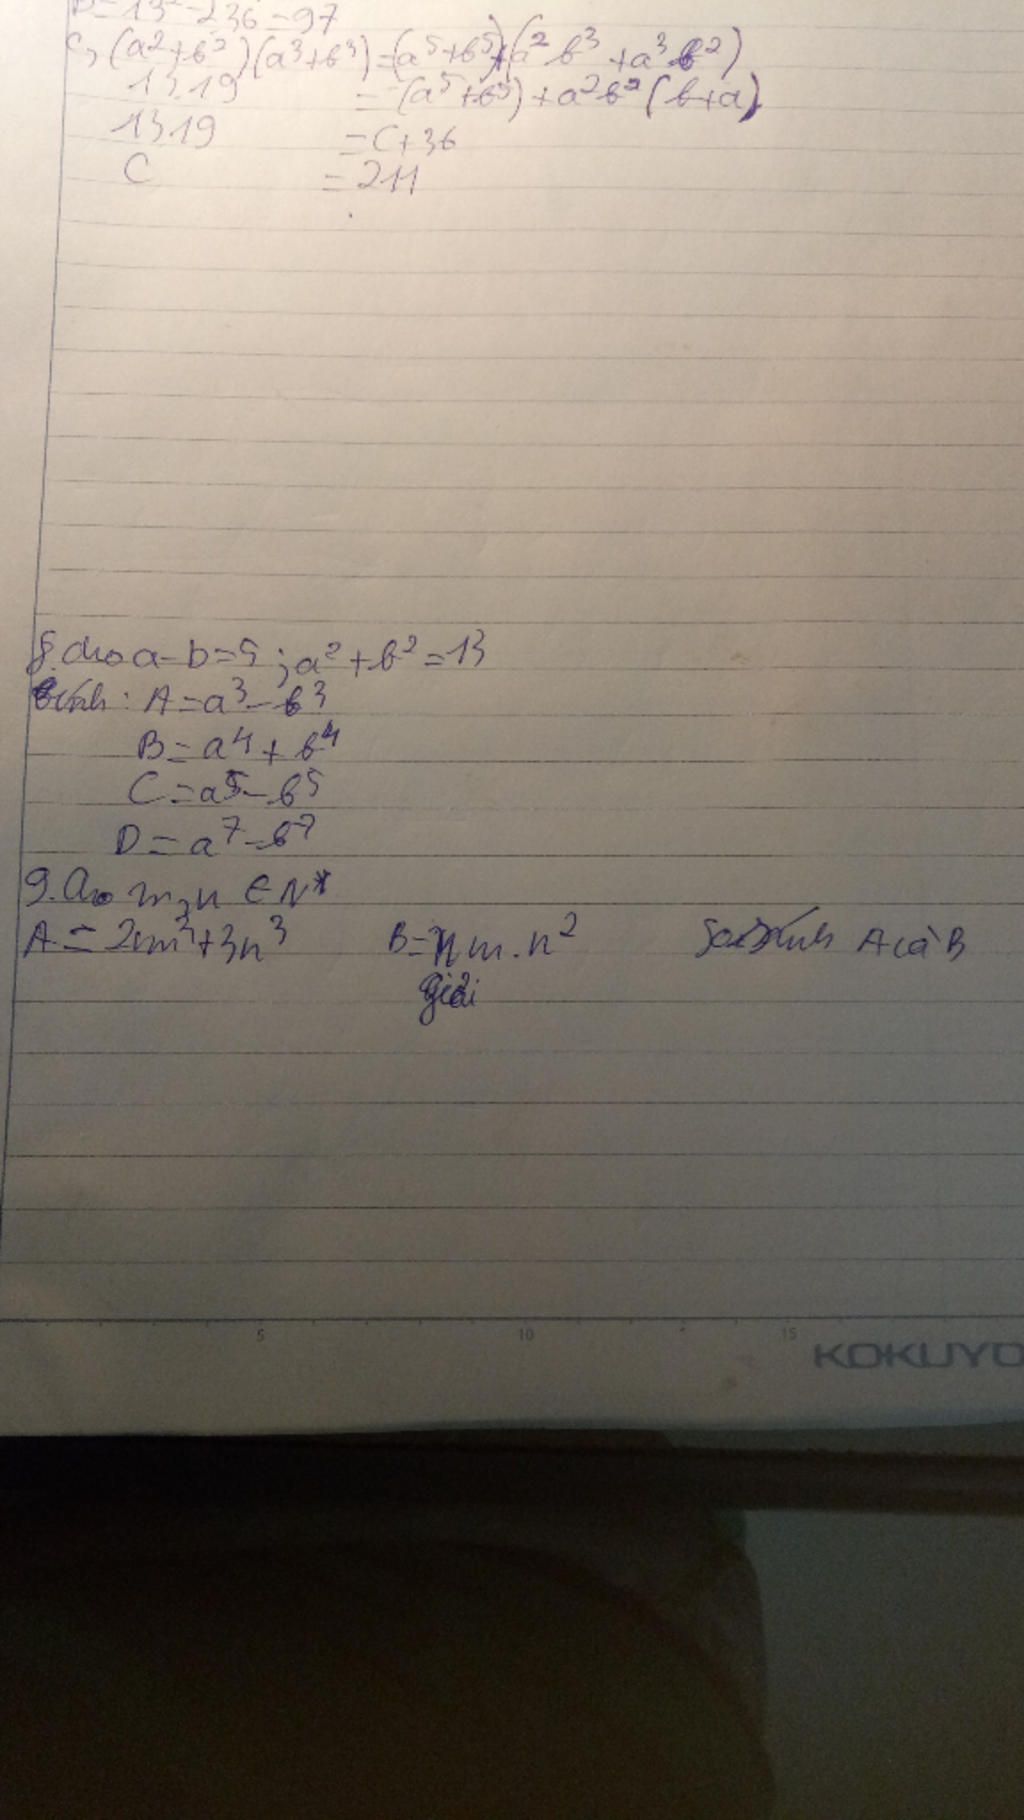 B=13²-2.36=97
C, (a²+b²)(a³+b³)=(a⁵+b⁵)+(a²b³+a³b²)
13.19 =(a⁵+b⁵)+a²b²(b+a)
13.19 =C+36
C =211
8. cho a-b=5; a²+b²=13
tính: A=a³-b³
B=a⁴+b⁴
C=a⁵-b⁵
D=a⁷-b⁷
9. Cho m,n ∈ N*
A=2m³+3n³ B= m.n² So sánh A và B
giải
5 10 15
KOKUYO